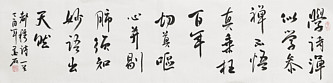 学诗浑
似学参
禅不悟
真乘枉
百年
切莫呕
心并剔
肺须知
妙语出
天然